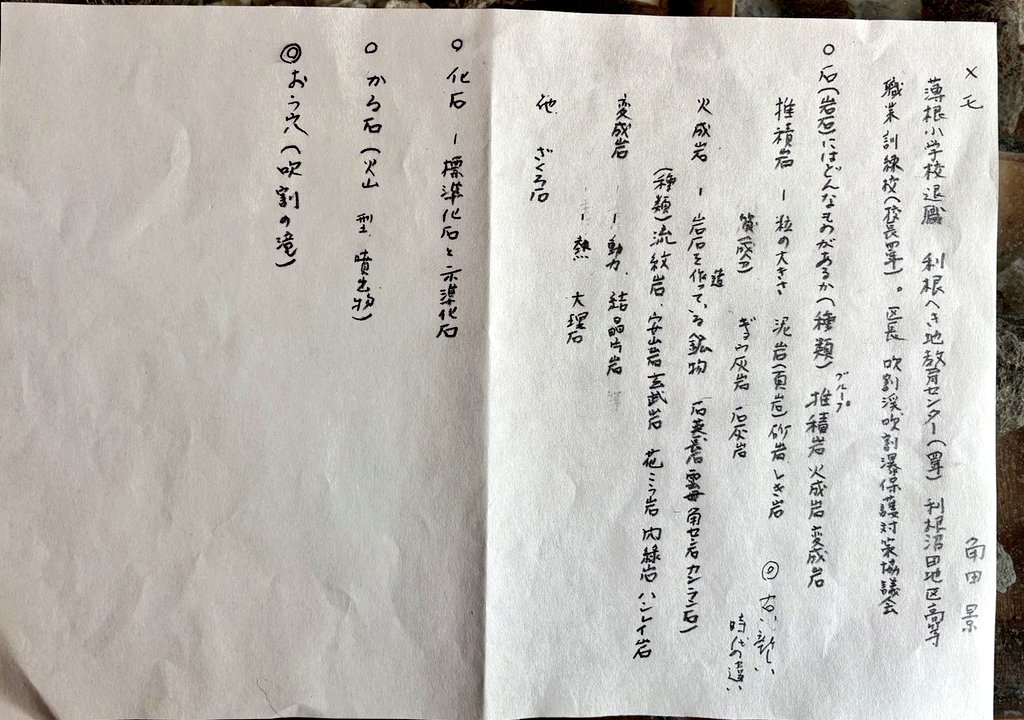 メモ
角田 景
薄根小学校退職 利根へき地教育センター(4年) 利根沼田地区高等
職業訓練校(校長四年)。区長 吹割渓吹割瀑保護対策協議会
○ 石(岩石)にはどんなものがあるか(種類) 堆積岩 火成岩 変成岩
グループ
堆積岩 ー 粒の大きさ 泥岩(頁岩)砂岩 レキ岩
◎ 古い 新しい
質(成分) ギョウ灰岩 石灰岩
時代の違い
火成岩 ー 岩石を作っている鉱物 石英 長石 雲母 角セン石 カンラン石)
造
(種類)流紋岩、安山岩 玄武岩 花コウ岩 閃緑岩 ハンレイ岩
変成岩 ー動力 結晶片岩
ー熱 大理石
他 ざくろ石
○ 化石 ー 標準化石と示準化石
○ かる石(火山 型 噴出物)
◎ おう穴(吹割の滝)